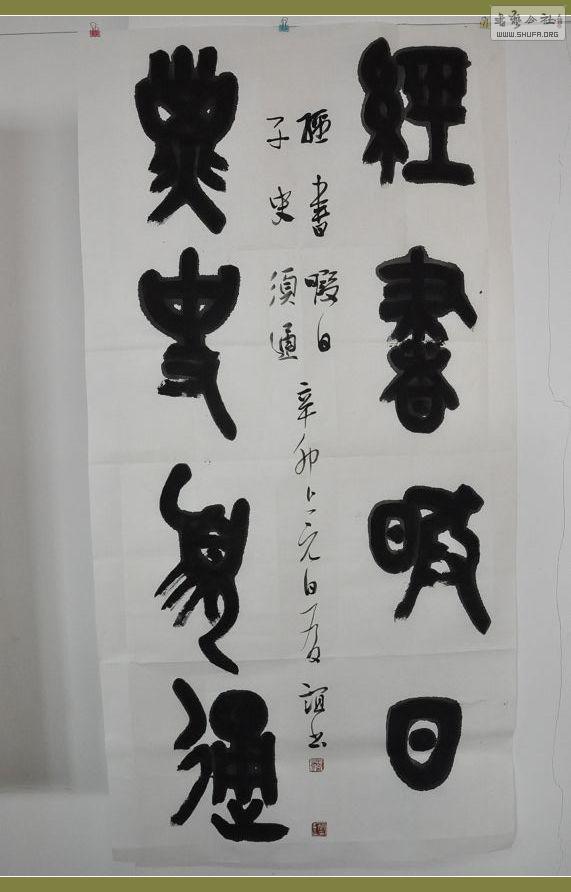 經書暇日
子史須通
經書暇日
子史須通
辛卯上元日夏
誼書
書藝公社
WWW.SHUFA.ORG